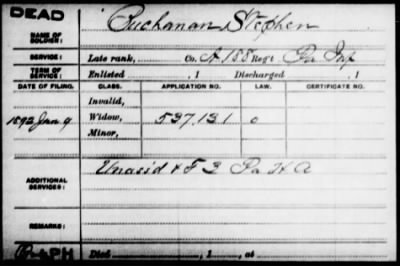 DEAD
NAME OF SOLDIER: Buchanan, Stephen
SERVICE: Late rank, Co. A, 188 Reg't Pa Inf
TERM OF SERVICE: Enlisted , 1 Discharged , 1
DATE OF FILING. CLASS. APPLICATION NO. LAW. CERTIFICATE NO.
Invalid,
1893 Jan 9 Widow, 537,131
Minor,
ADDITIONAL SERVICES: & F 3 Pa H A
REMARKS:
PH Died , 1 , at